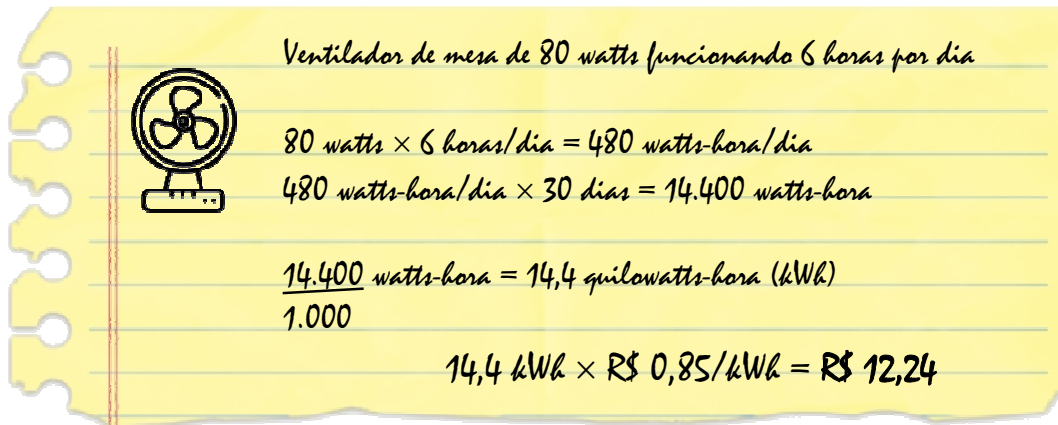 Ventilador de mesa de 80 watts funcionando 6 horas por dia
80 watts × 6 horas/dia = 480 watts-hora/dia
480 watts-hora/dia × 30 dias = 14.400 watts-hora
14.400 watts-hora = 14,4 quilowatts-hora (kWh)
1.000
14,4 kWh × R$ 0,85/kWh = R$ 12,24